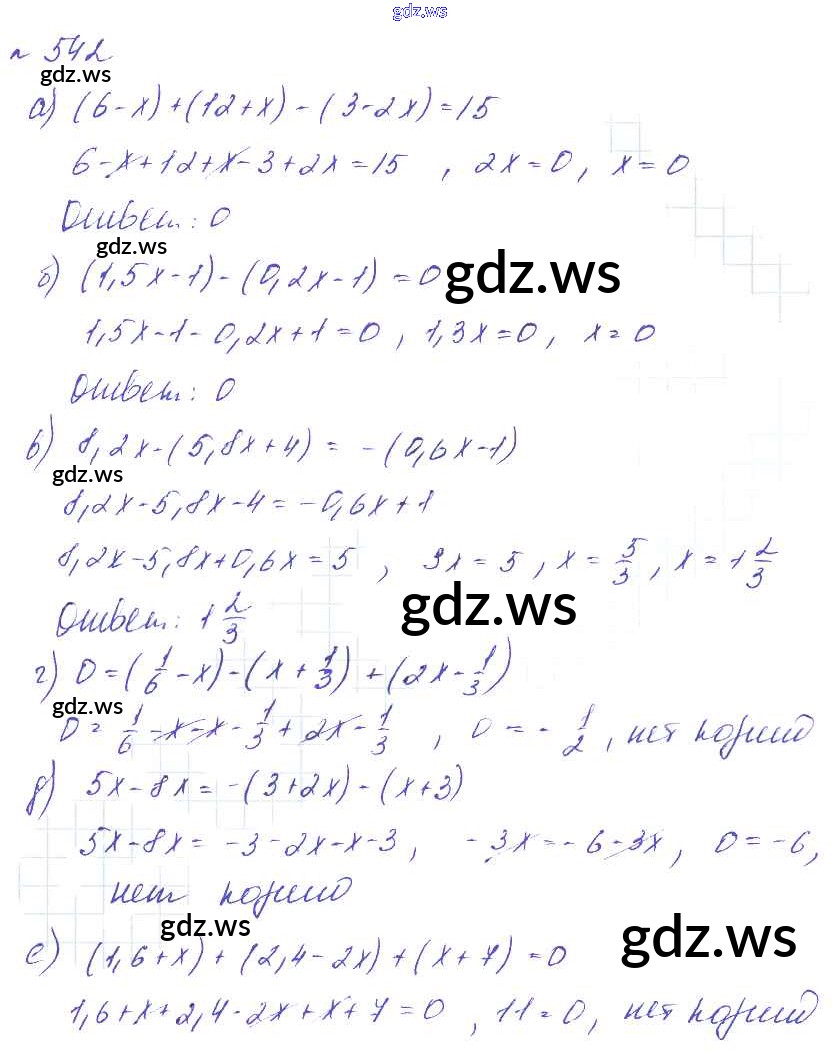 gdz.ws
n 542
gdz.ws
а) (6-x)+(12+x)-(3-2x)=15
6-x+12+x-3+2x=15 , 2x=0, x=0
Ответ: 0
gdz.ws
б) (1,5x-1)-(0,2x-1)=0
gdz.ws
1,5x-1-0,2x+1=0, 1,3x=0, x=0
Ответ: 0
в) 8,2x-(5,8x+4) = -(0,6x-1)
gdz.ws
8,2x-5,8x-4=-0,6x+1
8,2x-5,8x+0,6x=5 , 3x=5, x=5/3, x=1 2/3
gdz.ws
Ответ: 1 2/3
г) 0=(1/6-x)-(x+1/3)+(2x-1/3)
gdz.ws
0=1/6-x-x-1/3+2x-1/3 , 0=-1/2, нет корней
д) 5x-8x=-(3+2x)-(x+3)
5x-8x=-3-2x-x-3, -3x=-6-3x, 0=-6,
нет корней
gdz.ws
е) (1,6+x)+(2,4-2x)+(x+7)=0
gdz.ws
1,6+x+2,4-2x+x+7=0, 11=0, нет корней